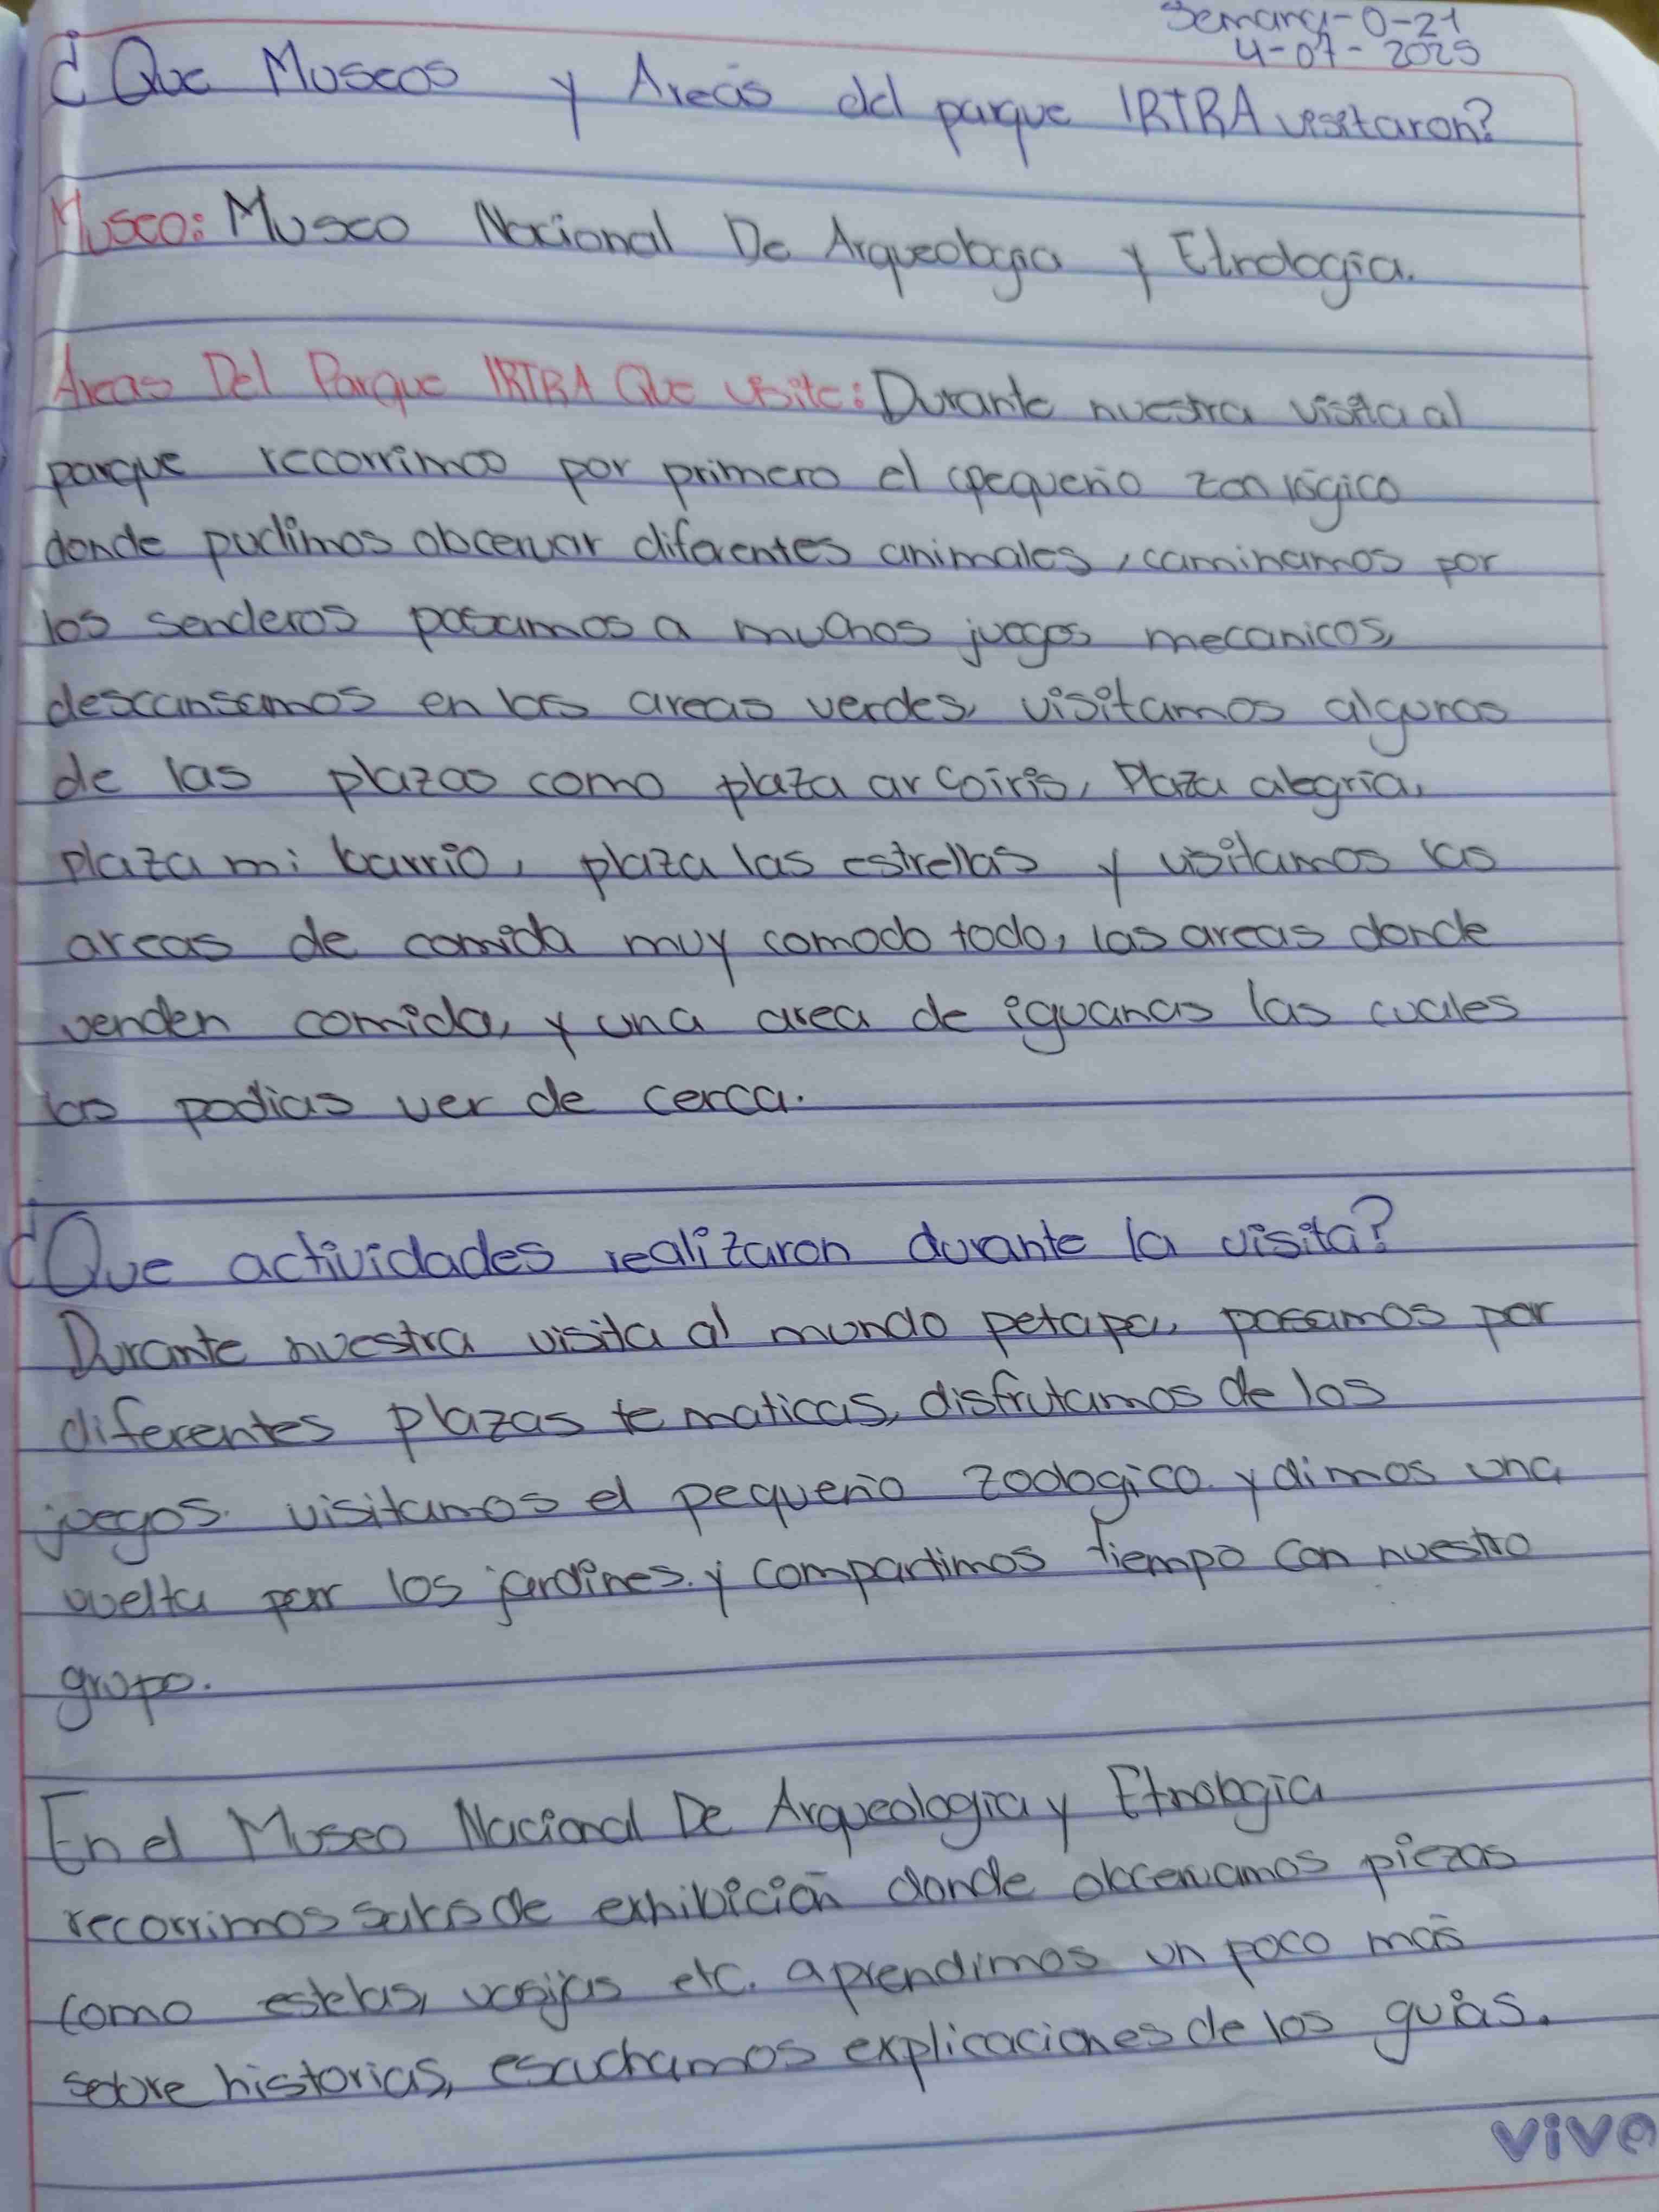 Semana-0-21
4-07-2025
¿Que Museos y Areás del parque IRTRA visitaron?
Museo: Museo Nacional De Arqueología y Etnología.
Areas Del Parque IRTRA Que visite: Durante nuestra visita al
parque recorrimos por primero el pequeño zoológico
donde pudimos obcervar diferentes animales, caminamos por
los senderos pasamos a muchos juegos mecanicos,
descansamos en las areas verdes, visitamos algunas
de las plazas como plaza arcoiris, Plaza alegría,
plaza mi barrio, plaza las estrellas y visitamos las
areas de comida muy comodo todo, las areas donde
venden comida, y una area de iguanas las cuales
las podias ver de cerca.
¿Que actividades realizaron durante la visita?
Durante nuestra visita al mundo petapa, pasamos por
diferentes plazas tematicas, disfrutamos de los
juegos. visitamos el pequeño zoologico y dimos una
vuelta por los jardines. y compartimos tiempo con nuestro
grupo.
En el Museo Nacional De Arqueologia y Etnologia
recorrimos salas de exhibición donde obcervamos piezas
como estelas, vasijas etc. aprendimos un poco más
sobre historias, escuchamos explicaciones de los guías.
vivo